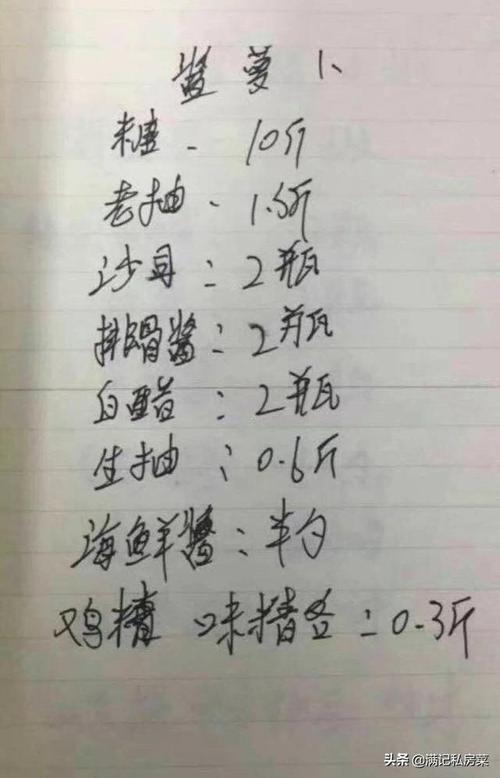 酱萝卜
糖. 10斤
老抽. 1.5斤
沙司: 2瓶
排骨酱: 2瓶
白醋: 2瓶
生抽: 0.6斤
海鲜酱: 半勺
鸡精 味精各: 0.3斤
头条 @满记私房菜